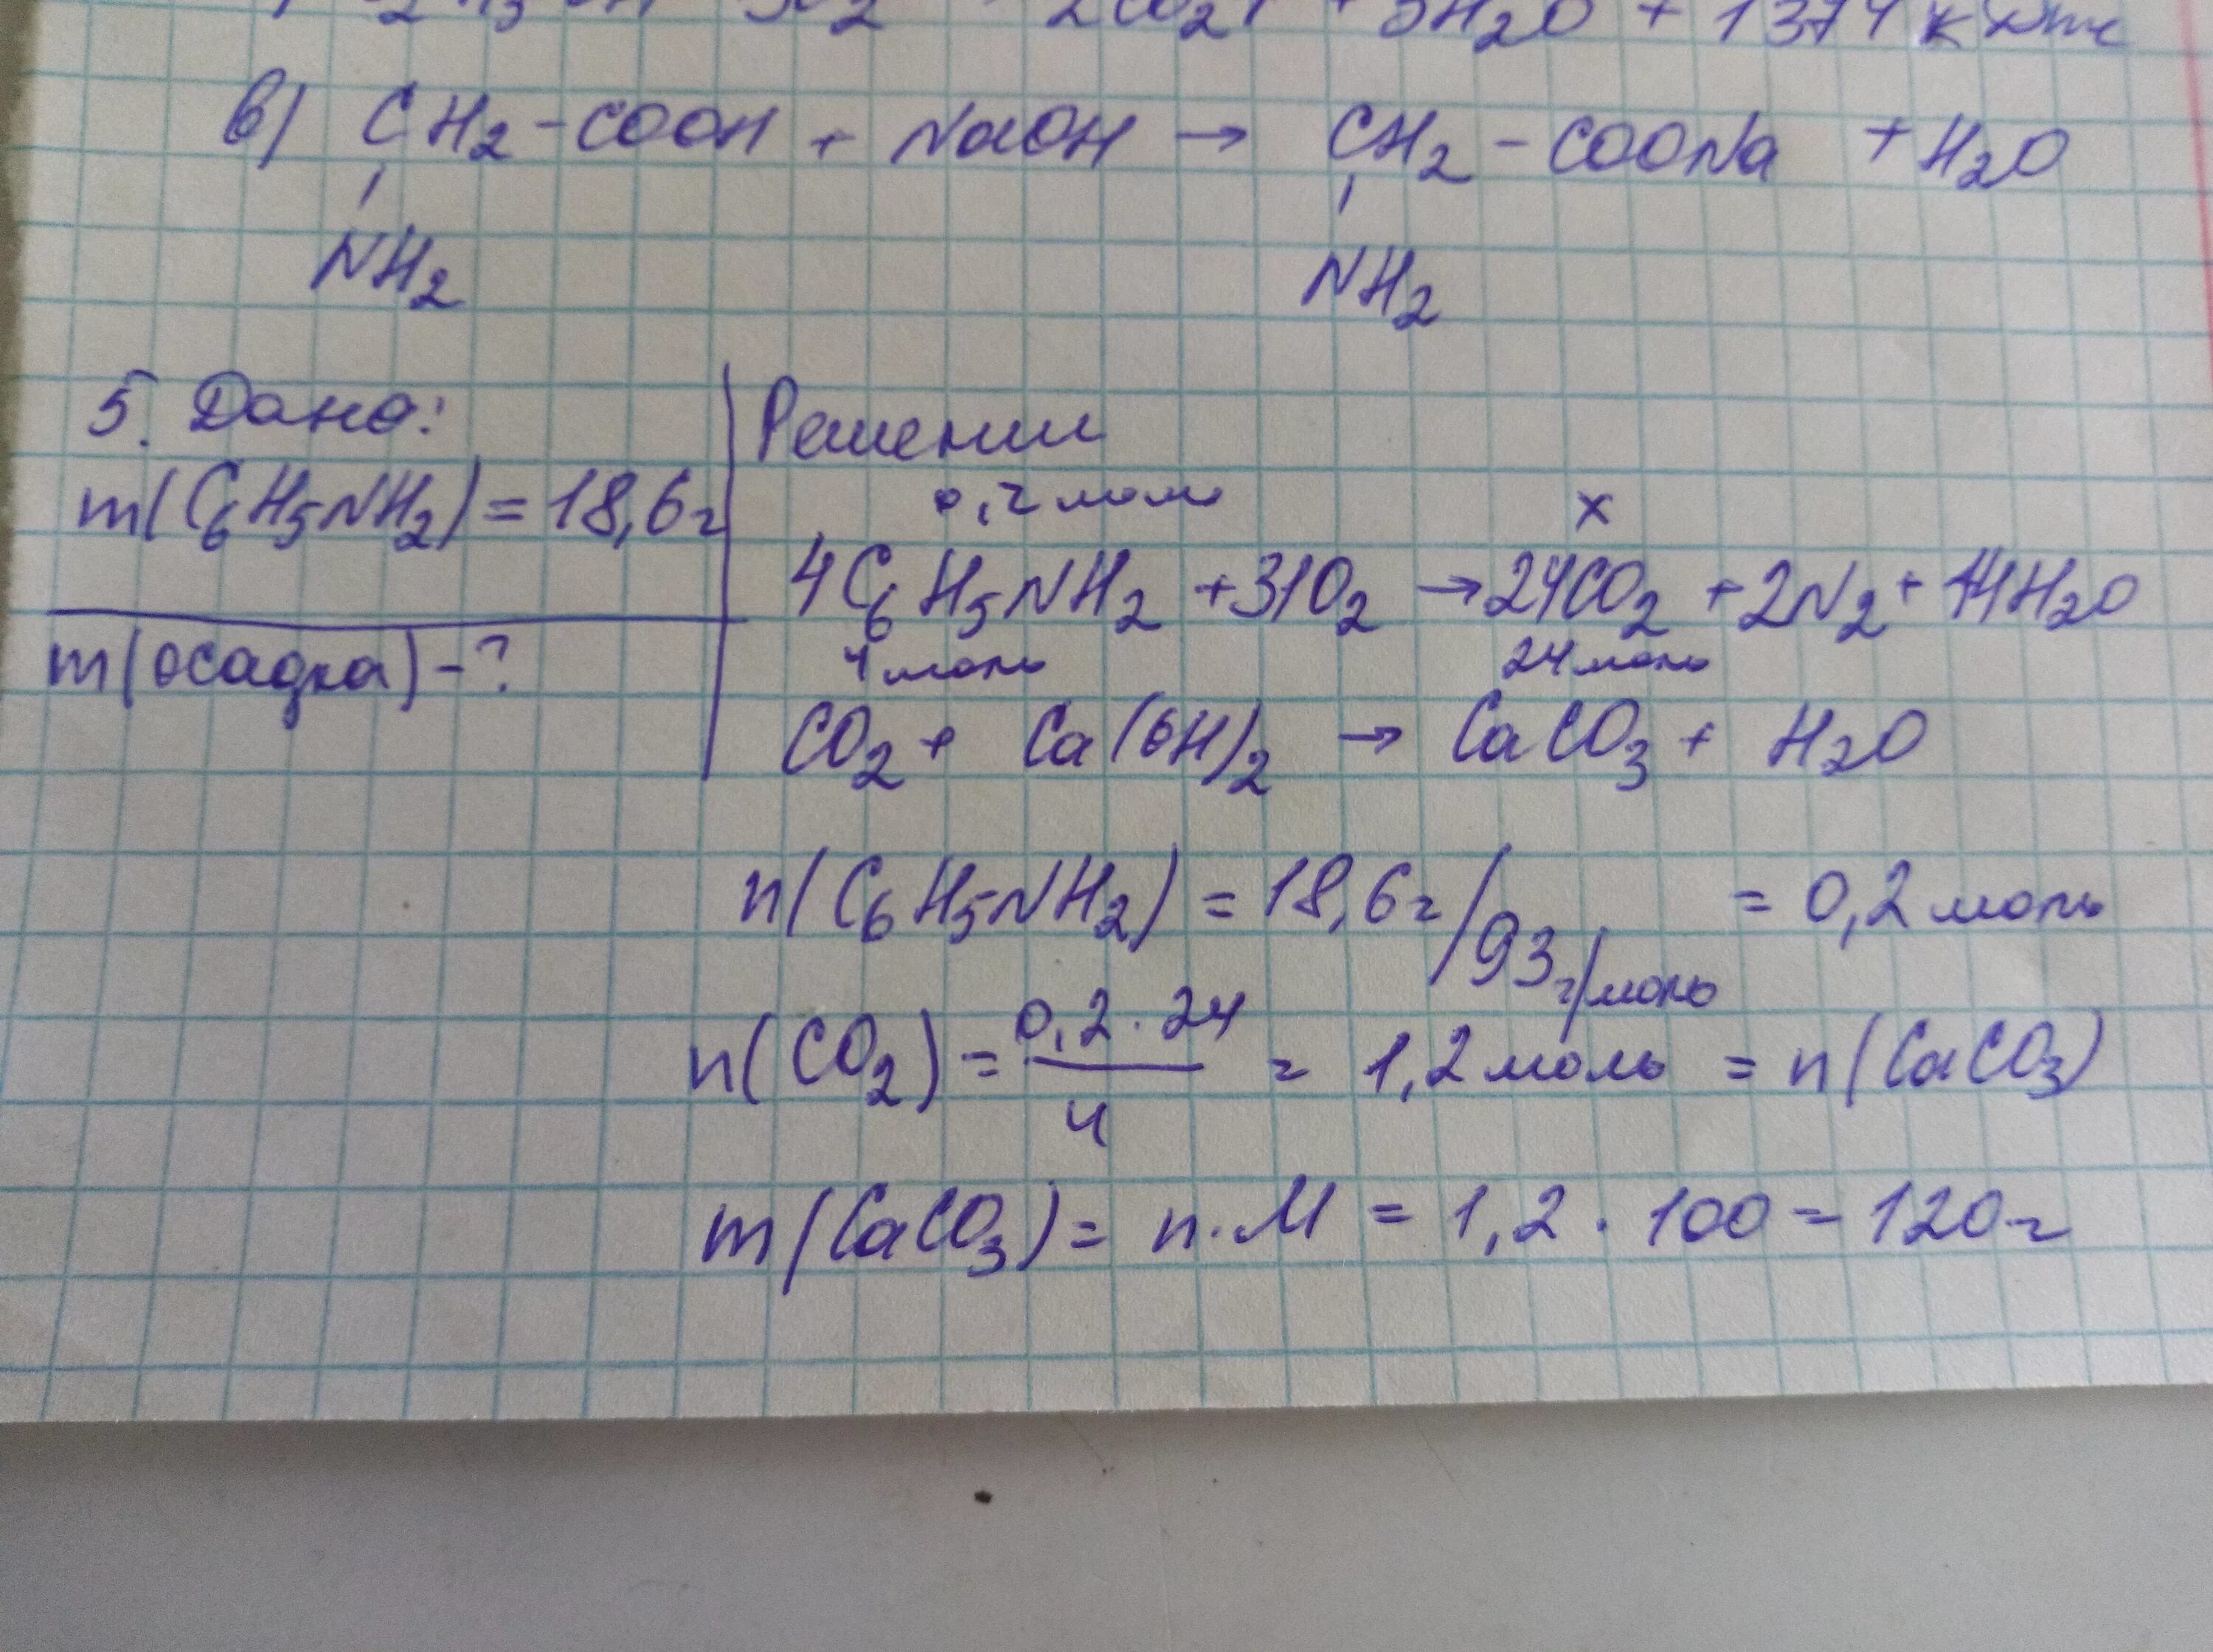 2CO₂↑ + 3H₂O + 1374 кДж
в) CH₂ - COOH + NaOH → CH₂ - COONa + H₂O
NH₂ NH₂
5. Дано:
m(C₆H₅NH₂) = 18,6г
m(осадка) - ?
Решении
0,2 моль x
4C₆H₅NH₂ + 31O₂ → 24CO₂ + 2N₂ + 14H₂O
4 моль 24 моль
CO₂ + Ca(OH)₂ → CaCO₃ + H₂O
n(C₆H₅NH₂) = 18,6г/93г/моль = 0,2 моль
n(CO₂) = 0,2 · 24 / 4 = 1,2 моль = n(CaCO₃)
m(CaCO₃) = n · M = 1,2 · 100 = 120г